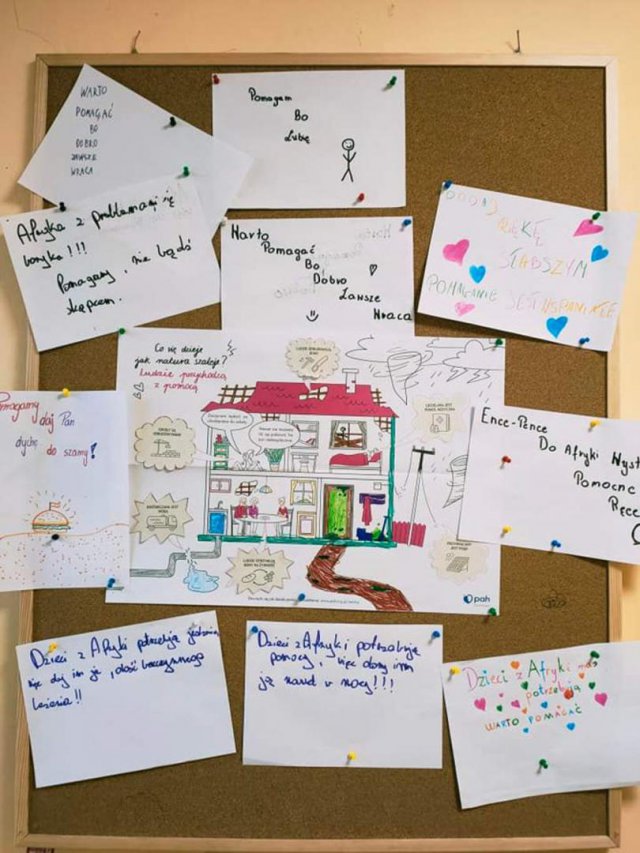 WARTO
POMAGAĆ
BO
DOBRO
ZAWSZE
WRACA
Pomagam
Bo
Lubię
Afryka z problemami się
boryka!!!
Pomagamy, nie bądź
skąpcem.
Warto
Pomagać
Bo
Dobro
Zawsze
Wraca
PODAJ
RĘKĘ
SŁABSZYM
POMAGANIE JEST WSPANIAŁE
Co się dzieje
jak natura szaleje?
Ludzie przychodzą
z pomocą
pah
Pomagamy daj Pan
dychę do szamy!
Ence-Pence
Do Afryki Wyst
Pomocne
Ręce
Dzieci z Afryki potrzebują
więc daj im je, dość bezczynnego
leżenia!!
Dzieci z Afryki potrzebują
pomocy, więc dajmy im
ją nawet w nocy!!!
Dzieci z Afryki nas
potrzebują
WARTO POMAGAĆ